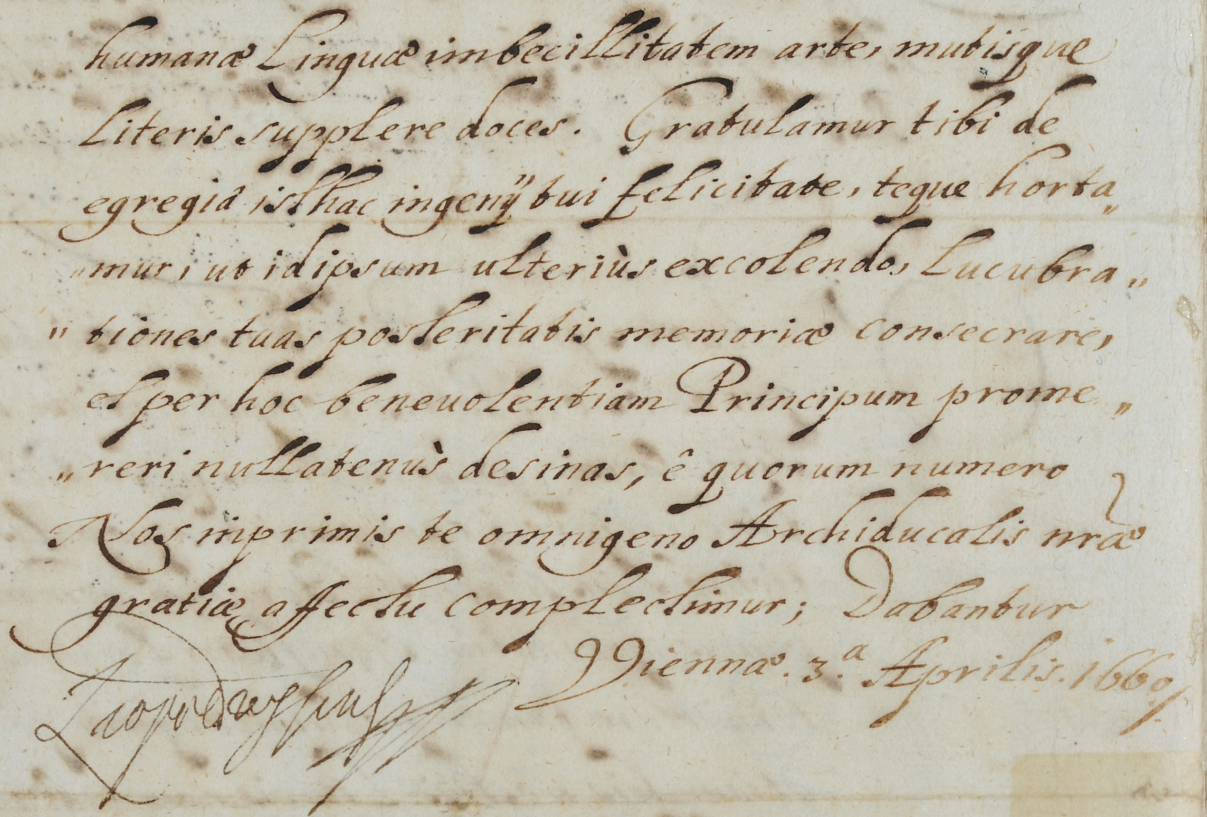 humanæ Linguæ imbecillitatem arte, mutisque
Literis supplere doces. Gratulamur tibi de
egregiâ isthac ingenij tui felicitate, teque horta„
„mur, ut idipsum ulteriùs excolendo, Lucubra„
„tiones tuas posteritatis memoriæ consecrare,
et per hoc beneuolentiam Principum prome„
„reri nullatenùs desinas, ê quorum numero
Nos inprimis te omnigeno Archiducalis nræ
gratiæ affectu complectimur; Dabantur
Viennæ. 3.ª Aprilis. 1660.